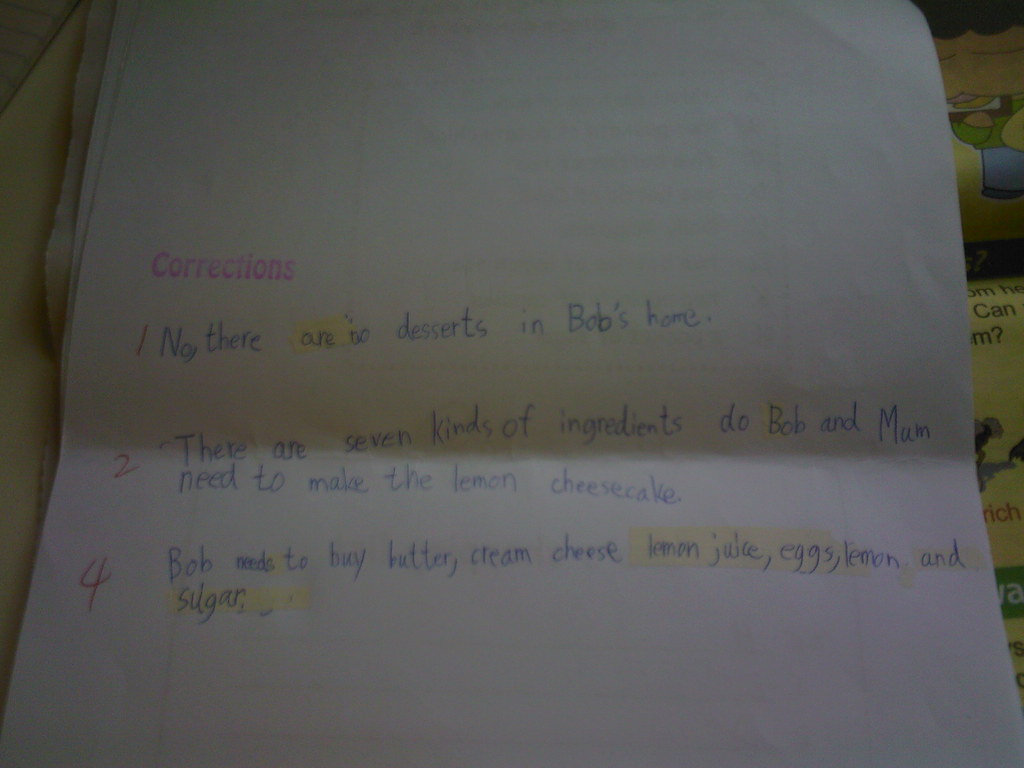 Corrections
1 No, there are no desserts in Bob's home.
2 There are seven kinds of ingredients do Bob and Mum
need to make the lemon cheesecake.
4 Bob needs to buy butter, cream cheese lemon juice, eggs, lemon and
sugar.
s?
om he
Can
m?
rich